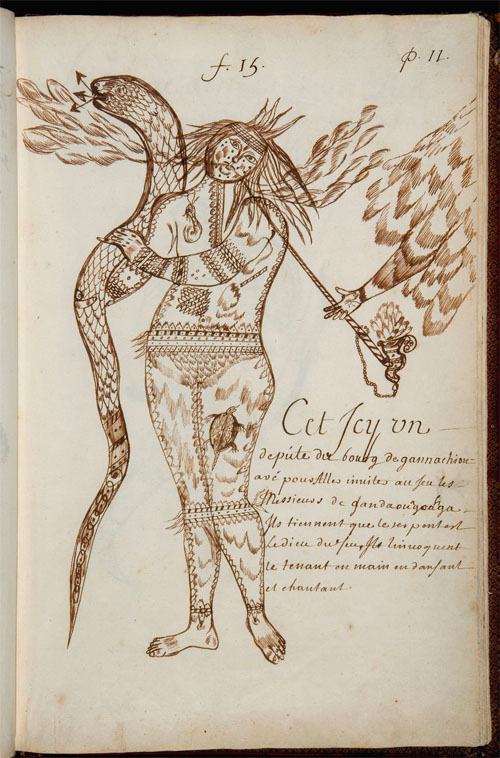 f. 15.
p. 11.
Cet Icy un
depute du bourg de gannachiou
avé pour Aller inviter au Jeu les
Messieurs de gandaouagoahga
Ils tiennent que le serpent est
Le dieu du feu, Ils L'invoquent
le tenant en main en dansant
et chantant